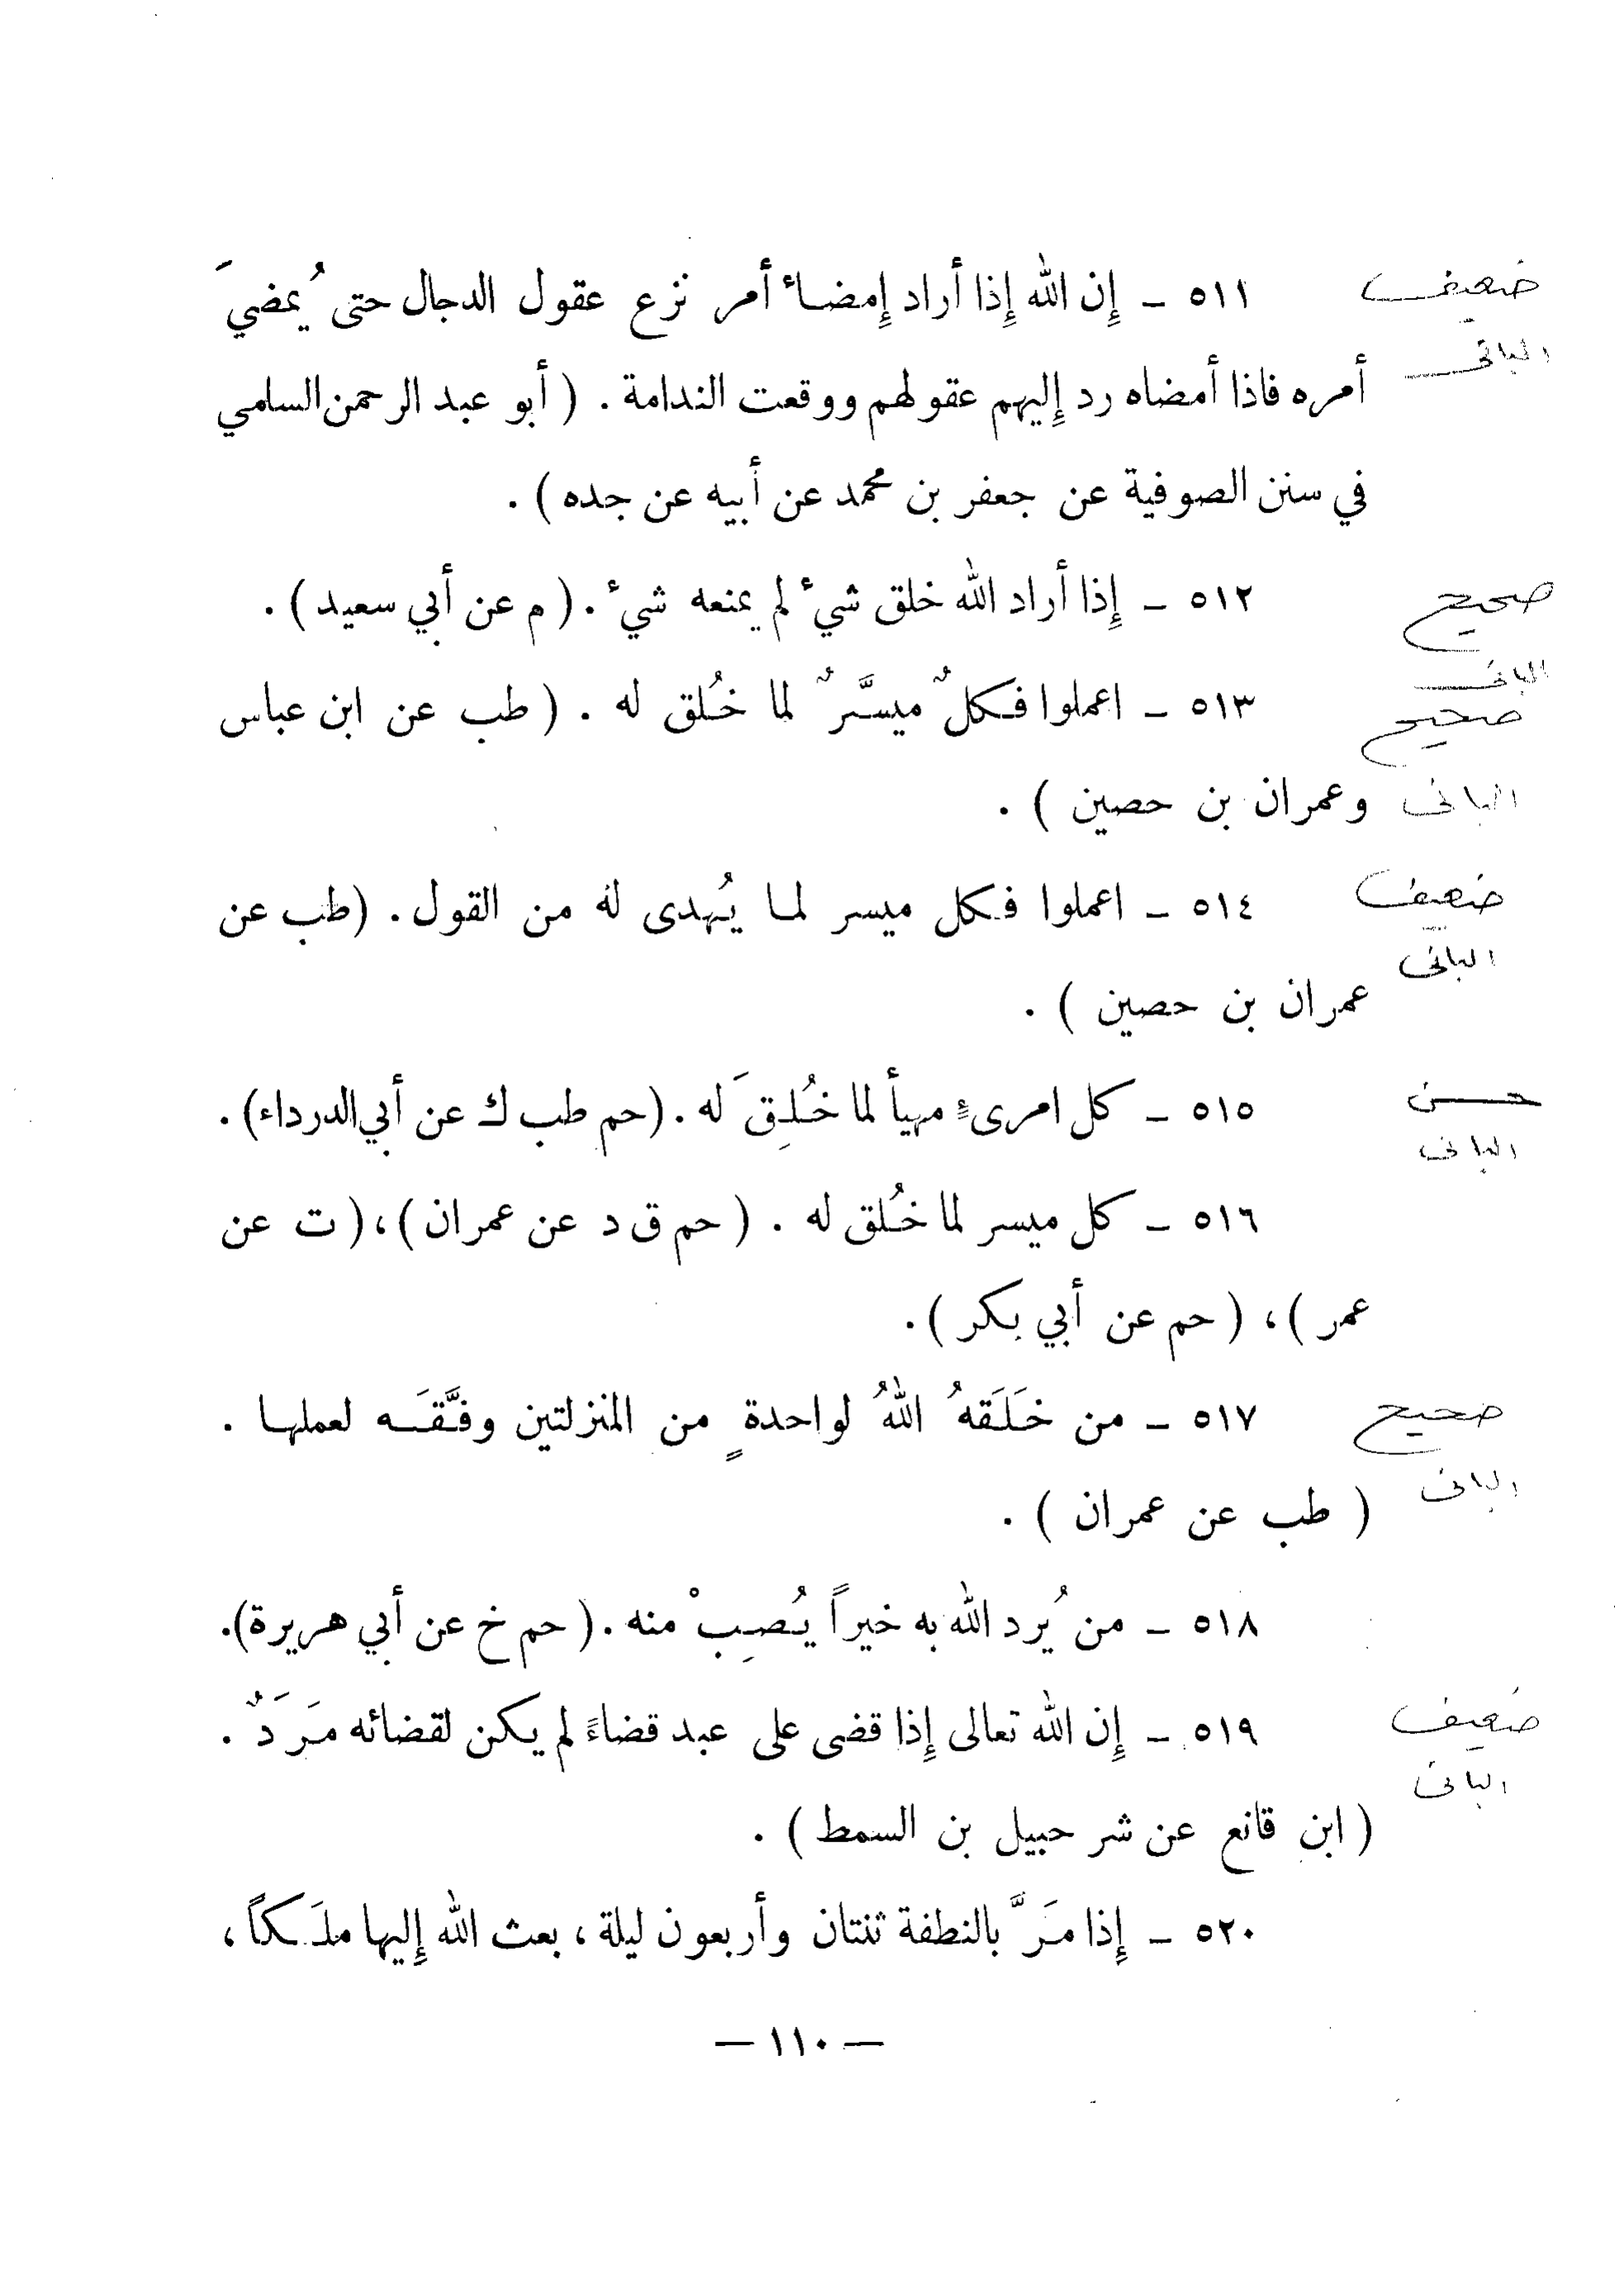 ٥١١ – إِن الله إِذا أراد إِمضاءْ أمر نزع عقول الدجال حتى يُمضيَ
ضعيف
البانى
أمره فاذا أمضاه رد إِليهم عقولهم ووقعت الندامة . ( أبو عبد الرحمن السامي
في سنن الصوفية عن جعفر بن محمد عن أبيه عن جده ) .
٥١٢ – إِذا أراد الله خلق شيءْ لم يمنعه شيءْ . ( م عن أبي سعيد ) .
صحيح
البانى
٥١٣ – اعملوا فكلٌ ميسَّرٌ لما خُلق له . ( طب عن ابن عباس
صحيح
وعمران بن حصين ) .
البانى
٥١٤ – اعملوا فكل ميسر لما يُهدى له من القول . (طب عن
ضعيف
البانى
عمران بن حصين ) .
٥١٥ – كل امرىءٍ مهيأ لما خُلِقَ له . (حم طب ك عن أبي الدرداء) .
حسن
البانى
٥١٦ – كل ميسر لما خُلق له . ( حم ق د عن عمران ) ، ( ت عن
عمر ) ، ( حم عن أبي بكر ) .
٥١٧ – من خَلَقهُ اللهُ لواحدةٍ من المنزلتين وفَّقَه لعملها .
صحيح
البانى
( طب عن عمران ) .
٥١٨ – من يُرد الله به خيراً يُصِبْ منه . ( حم خ عن أبي هريرة) .
٥١٩ – إِن الله تعالى إِذا قضى على عبد قضاءً لم يكن لقضائه مَرَدٌ .
ضعيف
البانى
( ابن قانع عن شرحبيل بن السمط ) .
٥٢٠ – إِذا مَرَّ بالنطفة ثنتان وأربعون ليلة ، بعث الله إِليها ملَكاً ،
— ١١٠ —